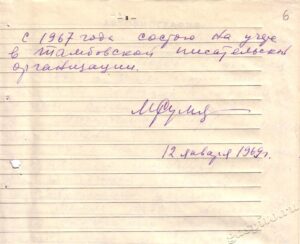 6
С 1967 года состою на учёте
в Тамбовской писательской
организации.
12 января 1969г.